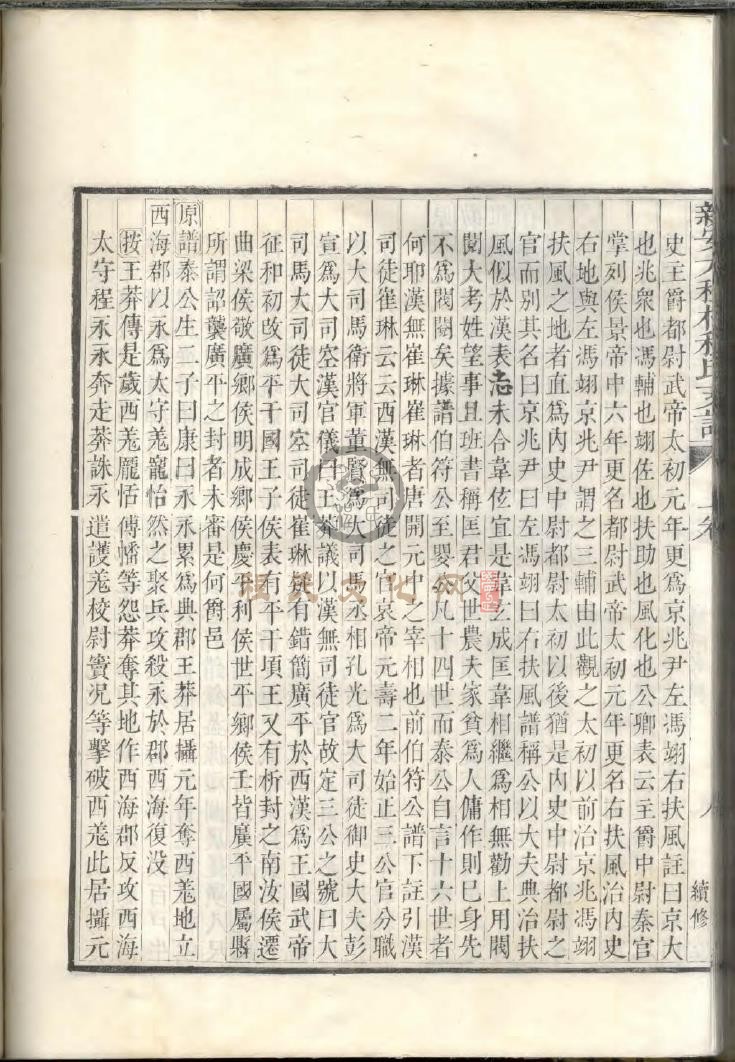 史主爵都尉武帝太初元年更爲京兆尹左馮翊右扶風註曰京大
也兆衆也馮輔也翊佐也扶助也風化也公卿表云主爵中尉秦官
掌列侯景帝中六年更名都尉武帝太初元年更名右扶風治內史
右地與左馮翊京兆尹謂之三輔由此觀之太初以前治京兆馮翊
扶風之地者直爲內史中尉都尉太初以後猶是內史中尉都尉之
官而別其名曰京兆尹曰左馮翊曰右扶風譜稱公以大夫典治扶
風似於漢表志未合韋佐宜是韋玄成匡韋相繼爲相無勸上用閥
閱大考姓望事且班書稱匡君父世農夫家貧爲人傭作則已身先
不爲閥閱矣據譜伯符公至嬰公凡十四世而泰公自言十六世者
何耶漢無崔琳崔琳者唐開元中之宰相也前伯符公譜下註引漢
司徒崔琳云云西漢無司徒之官哀帝元壽二年始正三公官分職
以大司馬衛將軍董賢爲大司馬丞相孔光爲大司徒御史大夫彭
宣爲大司空漢官儀曰王莽議以漢無司徒官故定三公之號曰大
司馬大司徒大司空司徒崔琳疑有錯簡廣平於西漢爲王國武帝
征和初改爲平干國王子侯表有平干頃王又有析封之南汝侯遷
曲梁侯敬廣鄉侯明成鄉侯慶平利侯世平鄉侯壬皆廣平國屬縣
所謂詔襲廣平之封者未審是何爵邑
原譜泰公生二子曰康曰永永累爲典郡王莽居攝元年奪西羌地立
西海郡以永爲太守羌龍怡然之聚兵攻殺永於郡西海復没
按王莽傳是歲西羌龐恬傅幡等怨莽奪其地作西海郡反攻西海
太守程永永奔走莽誅永遣護羌校尉竇況等擊破西羌此居攝元
續修